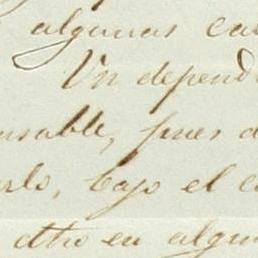 algunas cal
Un depend
nsable, pues d
erlo, bajo el c
otro en algun